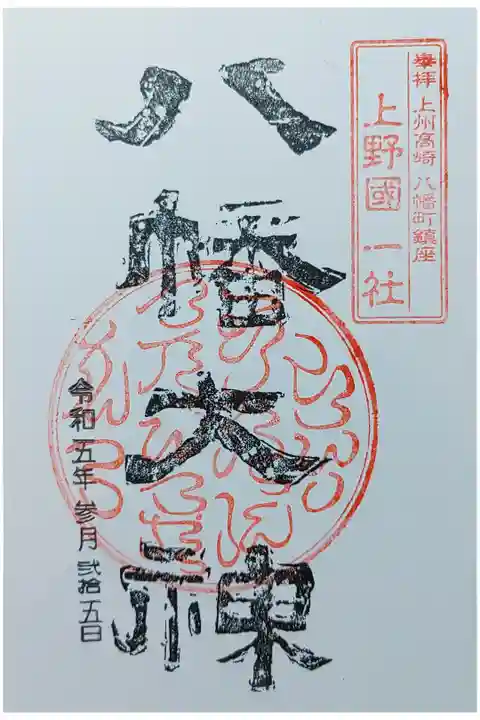 奉拝 上州高崎 八幡町鎮座
上野國一社
八幡大神
令和五年 参月 弐拾五日